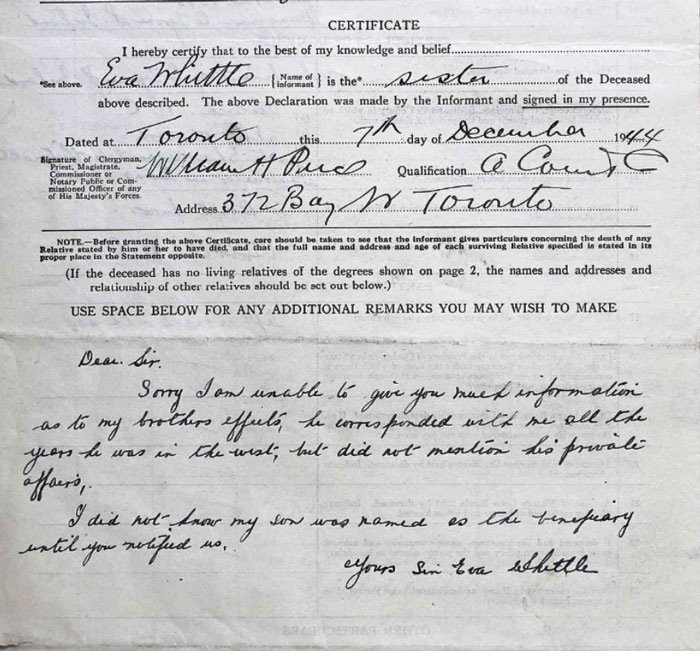 CERTIFICATE
I hereby certify that to the best of my knowledge and belief
*See above. Eva Whittle {Name of informant} is the* sister of the Deceased
above described. The above Declaration was made by the Informant and signed in my presence.
Dated at Toronto this 7th day of December 1944
Signature of Clergyman,
Priest, Magistrate,
Commissioner or
Notary Public or Com-
missioned Officer of any
of His Majesty's Forces.
William H Qualification A
Address 372 Bay W Toronto
NOTE.—Before granting the above Certificate, care should be taken to see that the informant gives particulars concerning the death of any
Relative stated by him or her to have died, and that the full name and address and age of each surviving Relative specified is stated in its
proper place in the Statement opposite.
(If the deceased has no living relatives of the degrees shown on page 2, the names and addresses and
relationship of other relatives should be set out below.)
USE SPACE BELOW FOR ANY ADDITIONAL REMARKS YOU MAY WISH TO MAKE
Dear. Sir.
Sorry I am unable to give you much information
as to my brothers effects, he corresponded with me all the
years he was in the west, but did not mention his private
affairs,.
I did not know my son was named as the benefiary
until you notified us.
Yours Sin Eva Whittle